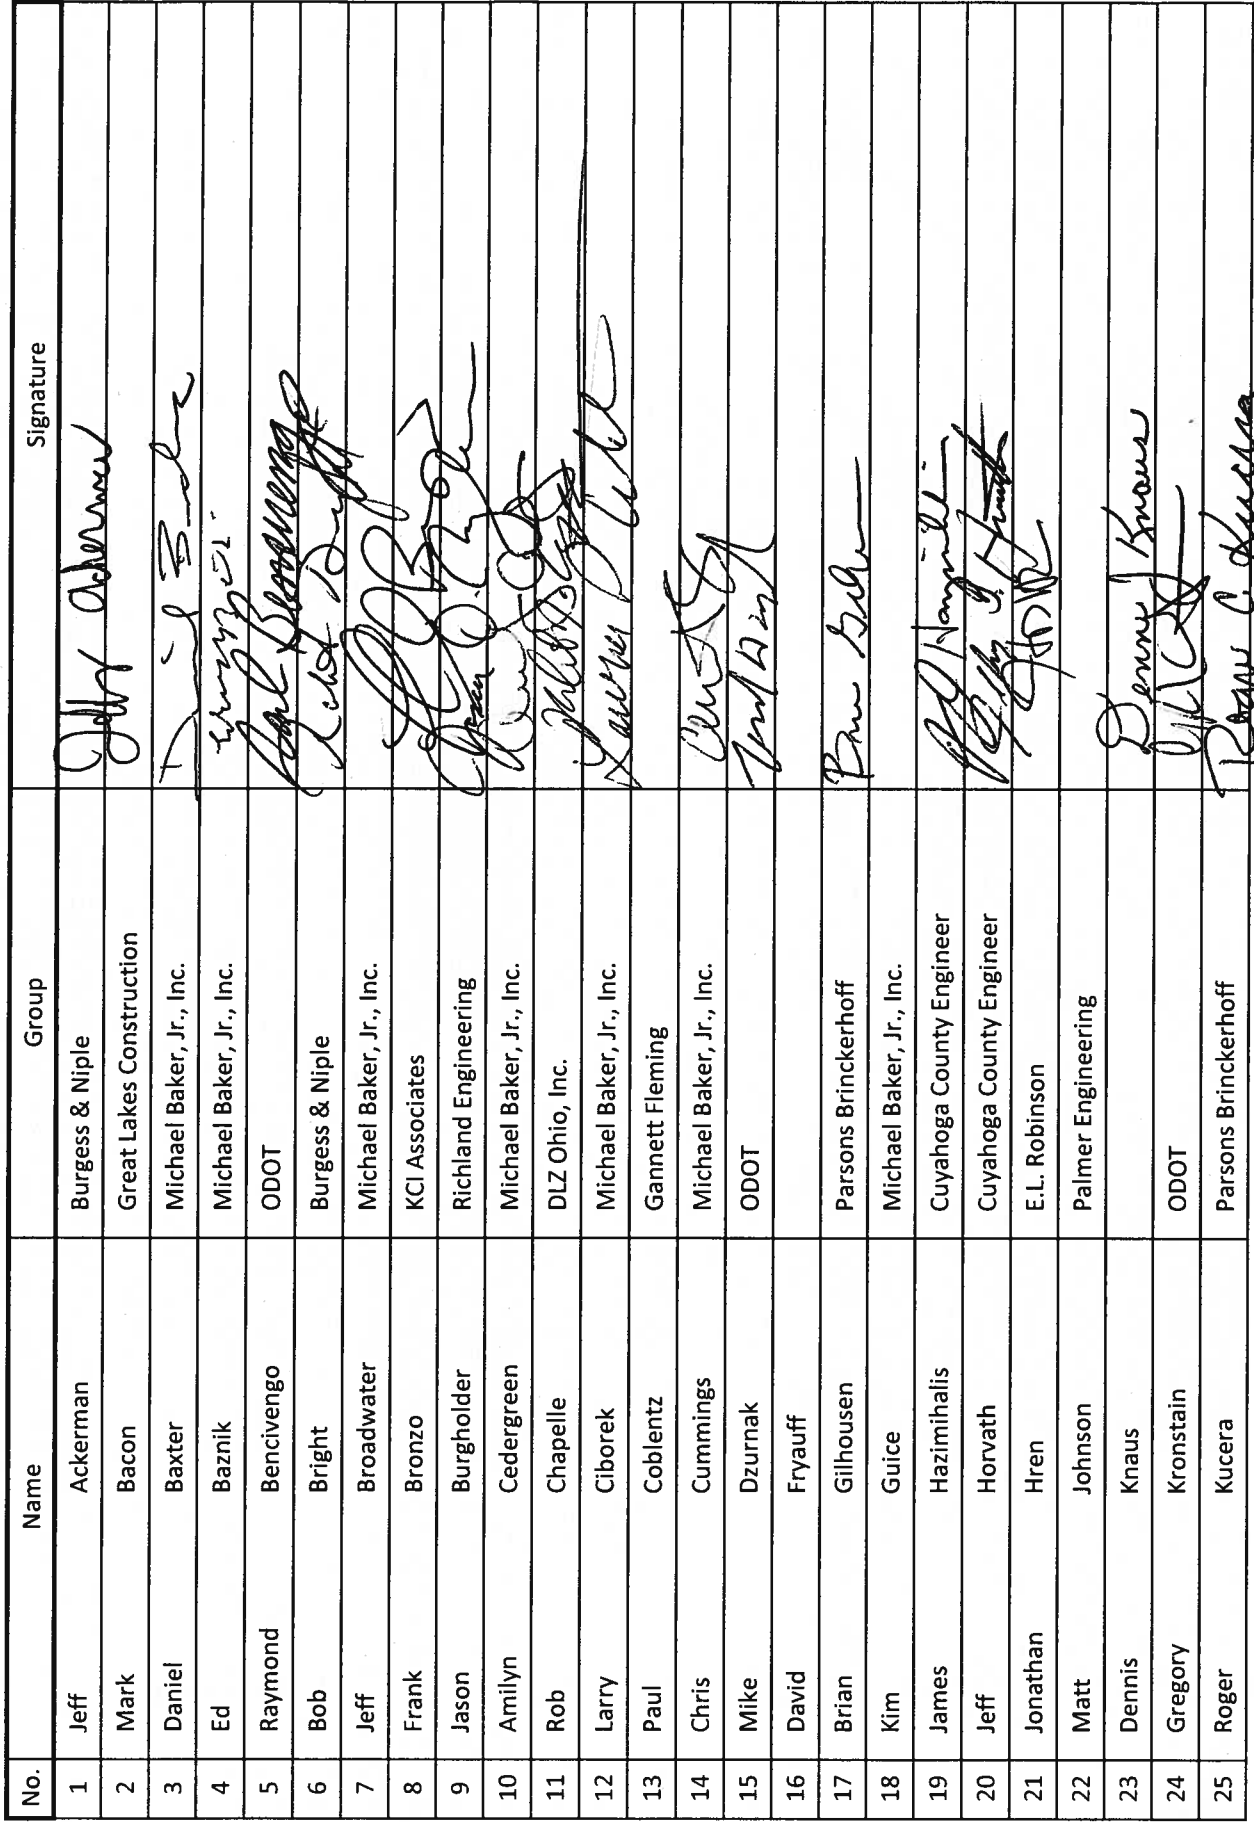 No. Name Group Signature
1 Jeff Ackerman Burgess & Niple Jeffry Ackerman
2 Mark Bacon Great Lakes Construction
3 Daniel Baxter Michael Baker, Jr., Inc.
4 Ed Baznik Michael Baker, Jr., Inc.
5 Raymond Bencivengo ODOT
6 Bob Bright Burgess & Niple
7 Jeff Broadwater Michael Baker, Jr., Inc.
8 Frank Bronzo KCI Associates
9 Jason Burgholder Richland Engineering
10 Amilyn Cedergreen Michael Baker, Jr., Inc.
11 Rob Chapelle DLZ Ohio, Inc.
12 Larry Ciborek Michael Baker, Jr., Inc.
13 Paul Coblentz Gannett Fleming
14 Chris Cummings Michael Baker, Jr., Inc.
15 Mike Dzurnak ODOT
16 David Fryauff
17 Brian Gilhousen Parsons Brinckerhoff
18 Kim Guice Michael Baker, Jr., Inc.
19 James Hazimihalis Cuyahoga County Engineer
20 Jeff Horvath Cuyahoga County Engineer
21 Jonathan Hren E.L. Robinson
22 Matt Johnson Palmer Engineering
23 Dennis Knaus Dennis J Knaus
24 Gregory Kronstain ODOT
25 Roger Kucera Parsons Brinckerhoff Roger C. Kucera